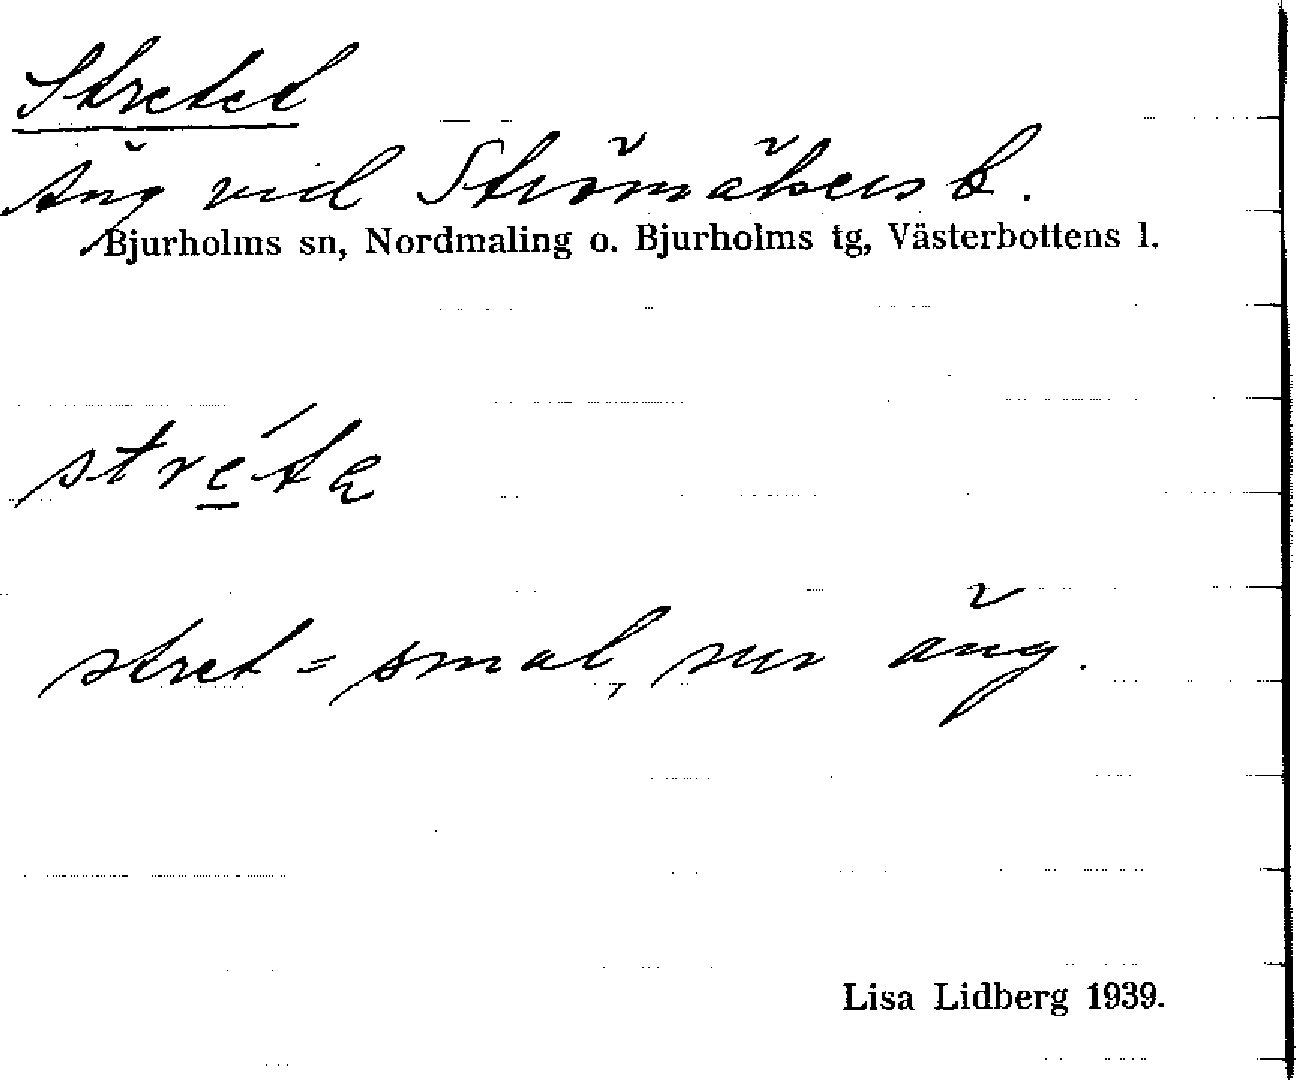 Stretet
Äng vid Strömåkers b.
Bjurholms sn, Nordmaling o. Bjurholms tg, Västerbottens l.
stre̲´tę
stret = smal, sur äng.
Lisa Lidberg 1939.